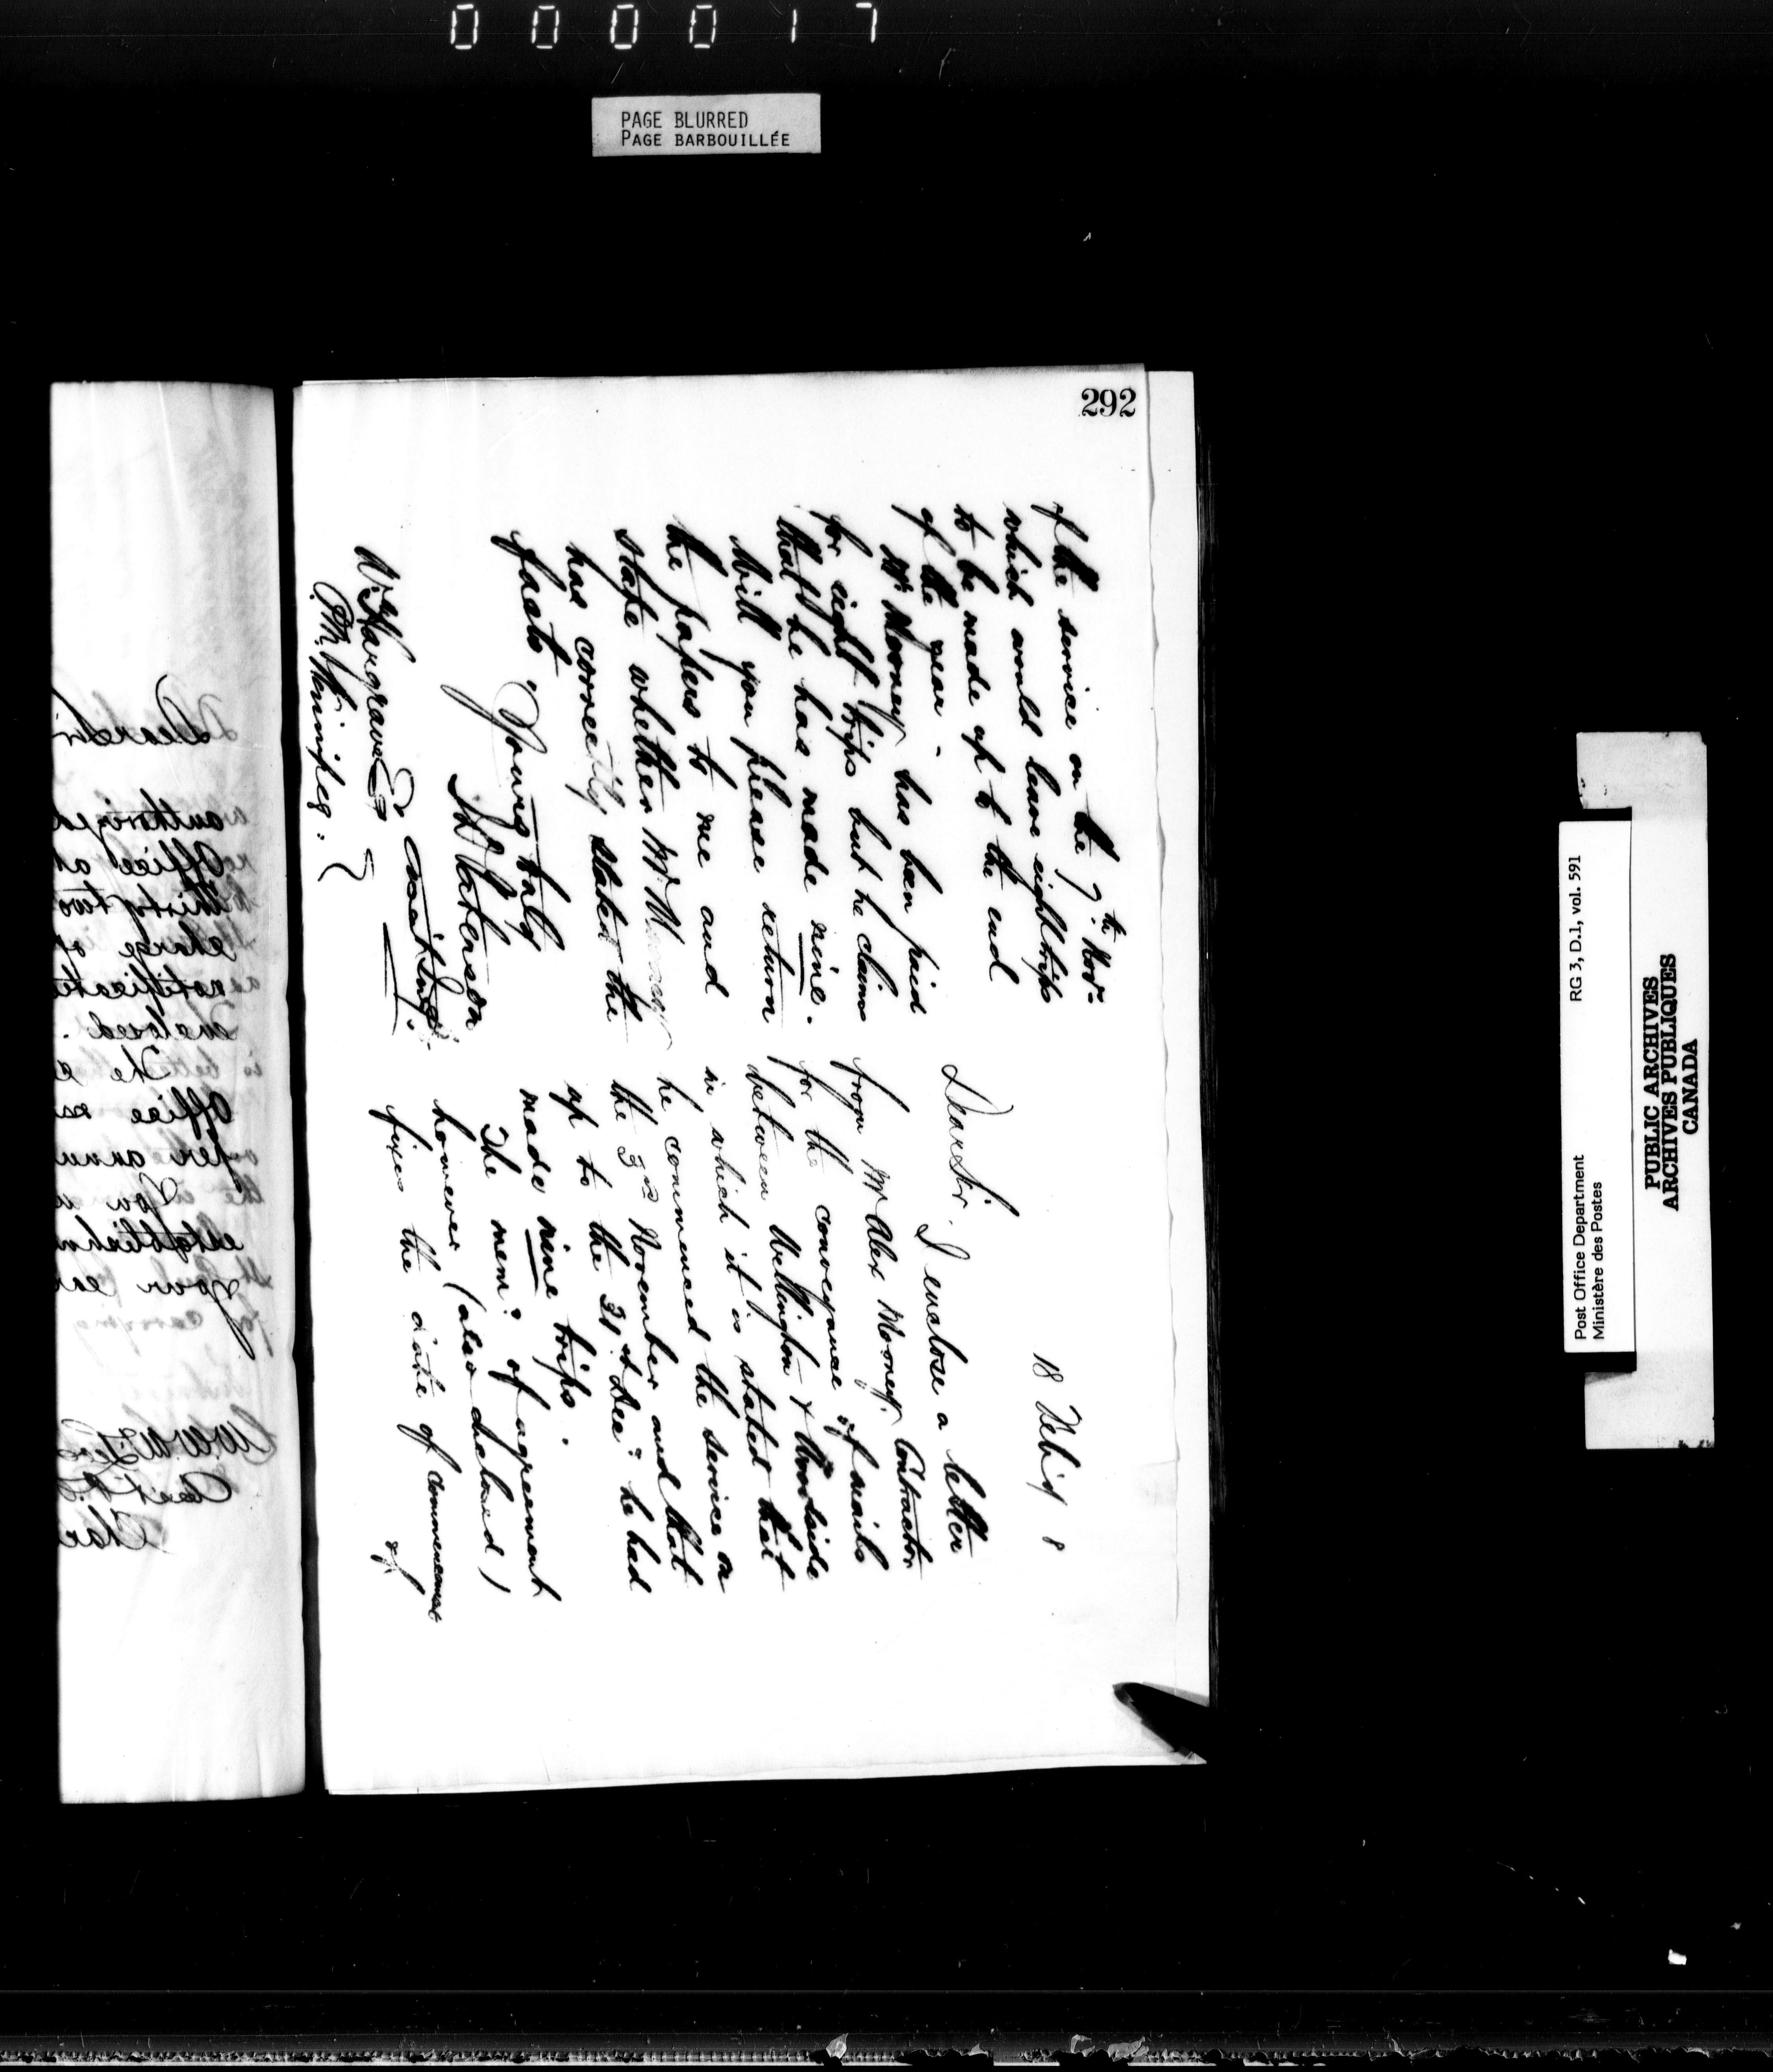 000017
PAGE BLURRED
PAGE BARBOUILLÉE
292
18 Feby 8
Dear Sir,
I enclose a letter
from Mr Alex Mooney Contractor
for the conveyance of mails
between Wellington & Woodside
in which it is stated that
he commenced the service on
the 3rd November and that
up to the 31st Decr he had
made nine trips.
The memo of agreement
however (also enclosed)
fixes the date of commencement
of
of the service on the 9th Novr
which would leave eight trips
to be made up to the end
of the year -
Mr Mooney has been paid
for eight trips but he claims
that he has made nine.
Will you please return
the papers to me and
state whether Mr Mooney
has correctly stated the
facts.
Yours truly
Waterson
W. Hargrave Esq
P.M. Winnipeg.
Dear Sir
authorized
Office at
thirty two
charge of
notificate
Enclosed.
The
Office
per annu
You
establishm
your
RG 3, D.1, vol. 591
Post Office Department
Ministère des Postes
PUBLIC ARCHIVES
ARCHIVES PUBLIQUES
CANADA